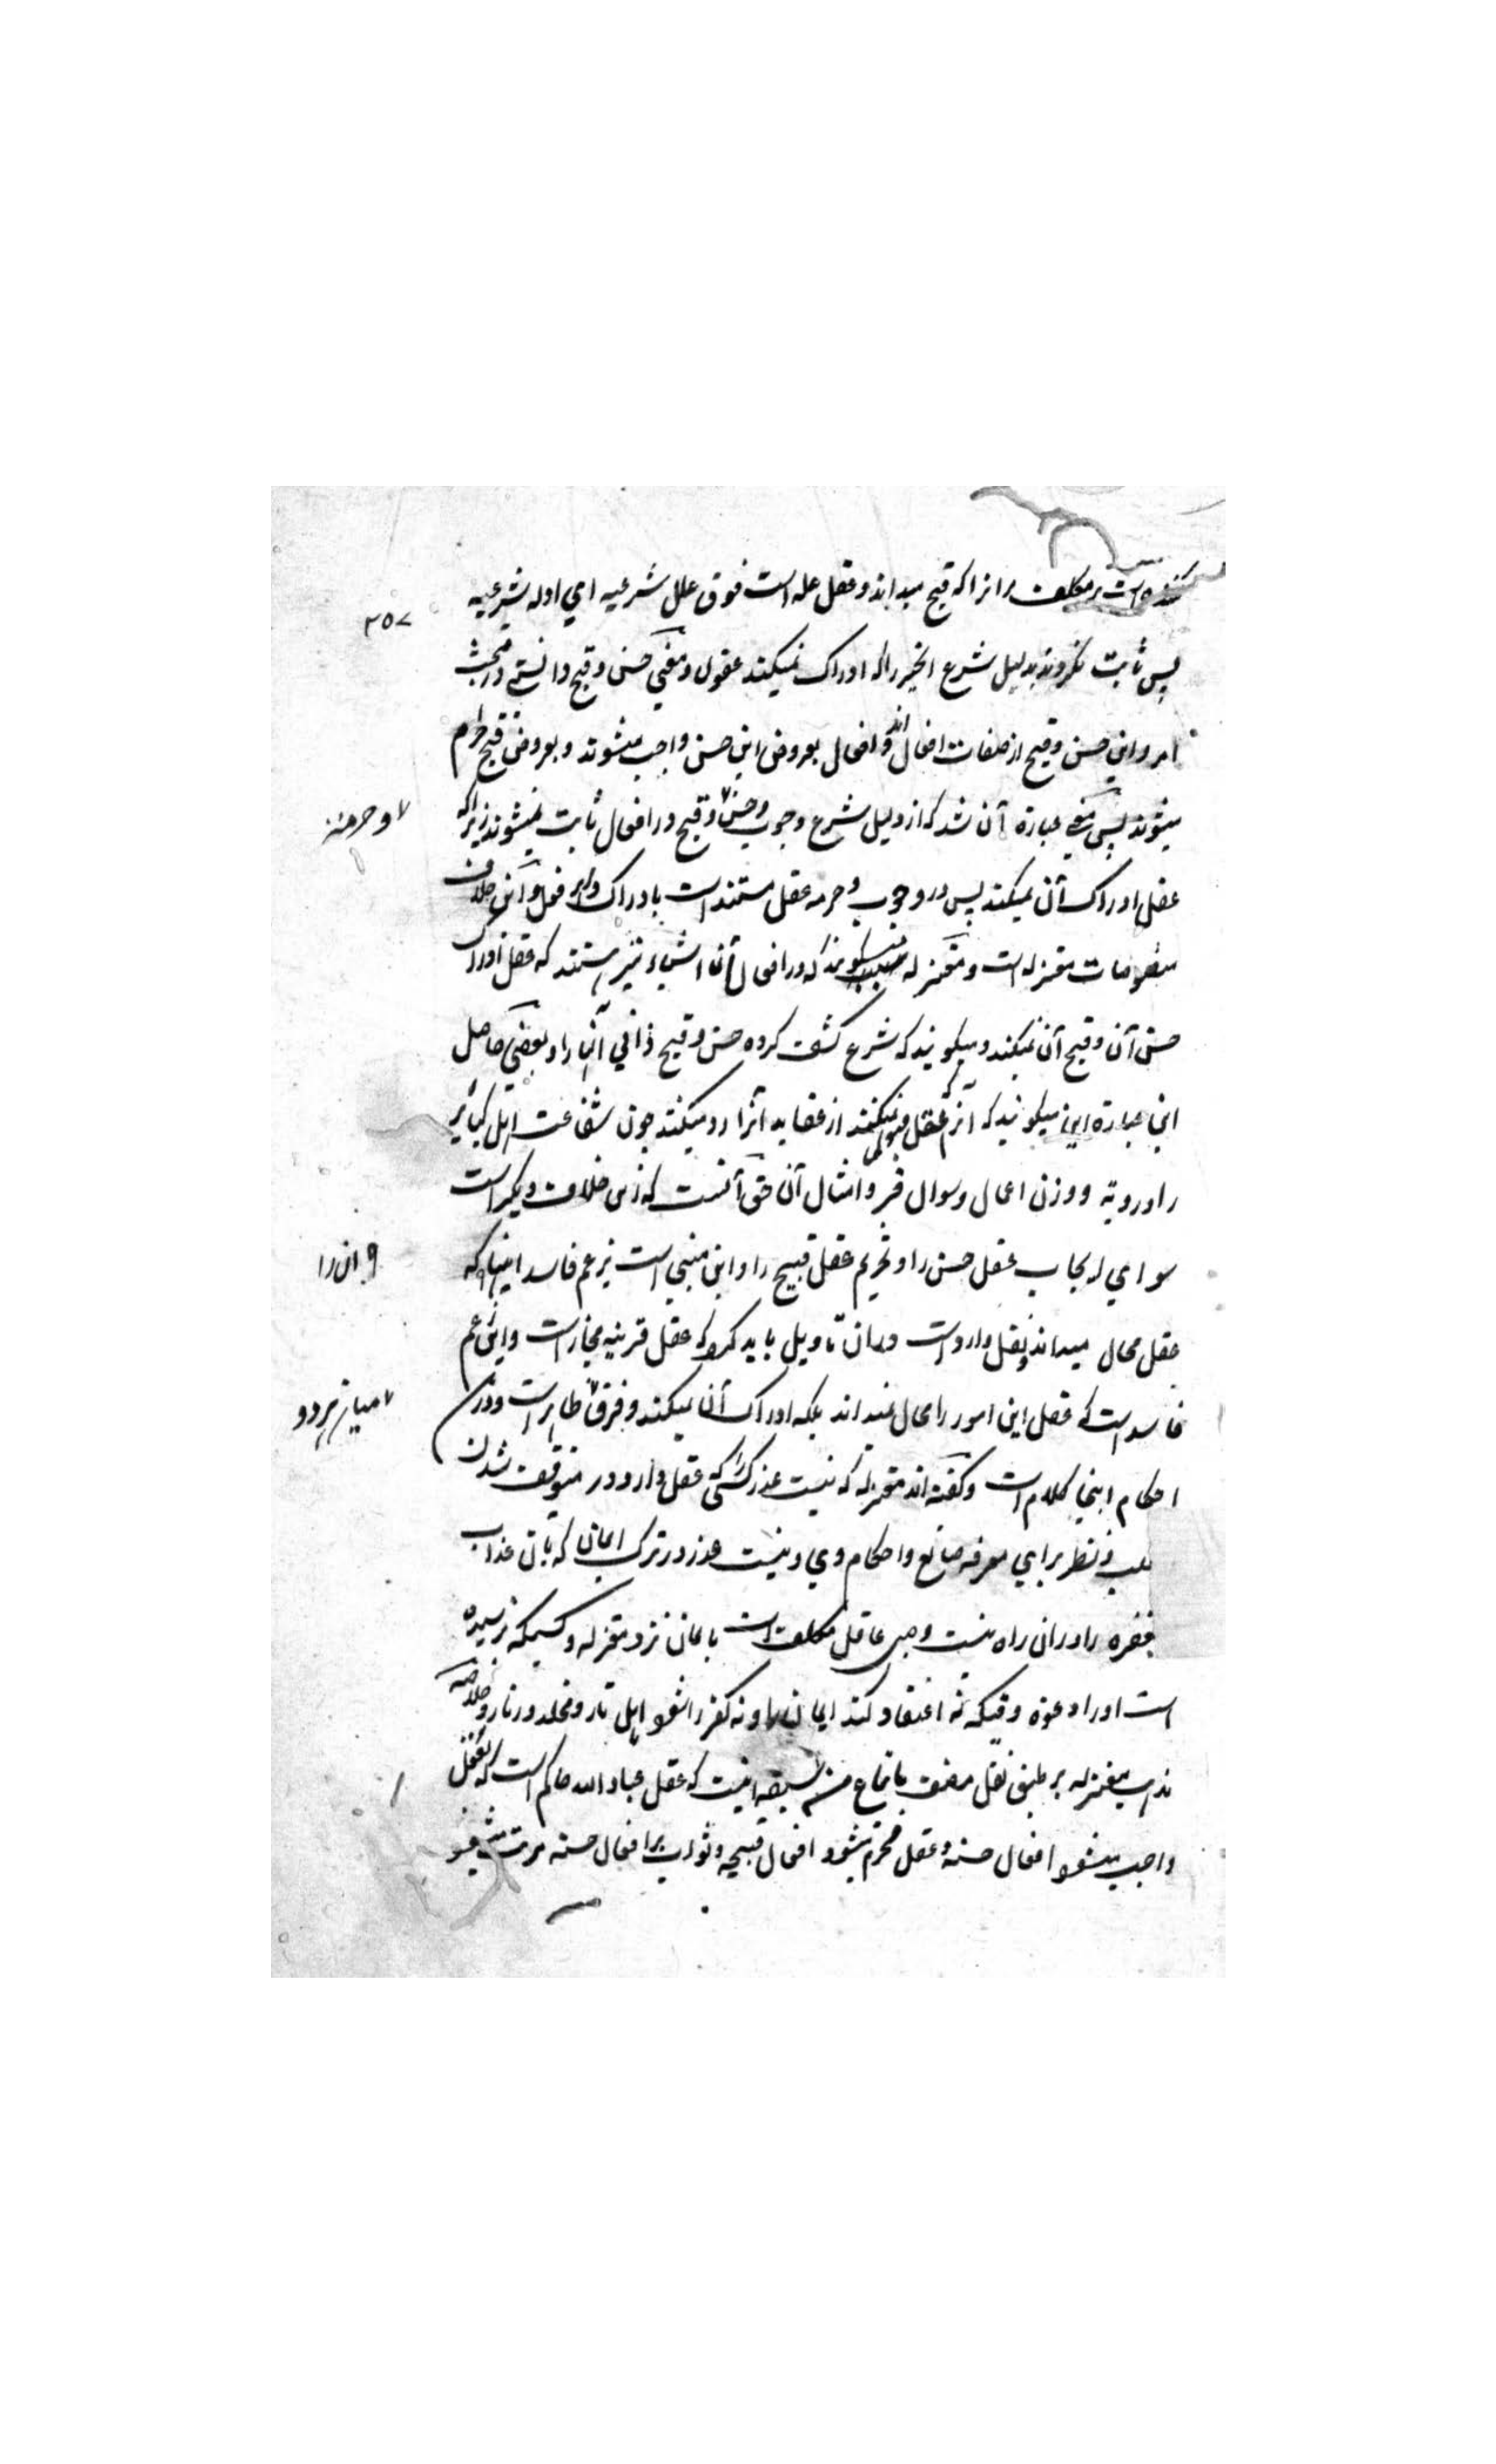 کننده است بر مکلف برانزا که قبیح میداند و عقل عله است فوق علل شرعیه ای ادله شرعیه
۳۵۷
پس ثابت نکروند بدلیل شرع انچیز را که ادراک نمیکند عقول و معنی حسن و قبیح دانستی در مبحث
امر و این حسن و قبیح از صفات افعال اند و افعال بعروض این حسن واجب میشوند و بعروض قبیح حرام
میشوند پس معنی عبارة آن شد که از دلیل شرع وجوب وحسن و قبیح در افعال ثابت نمیشوند زیرا که
۷ و حرمته
عقل ادراک آن نمیکند پس در وجوب و حرمه عقل مستند است بادراک فعل و این خلاف
معتزله است و معتزله میگویند که در افعال آن اشیاء نیز هستند که عقل ادراک
حسن آن و قبیح آن نمیکند و میگویند که شرع کشف کرده حسن و قبیح ذاتی آنها را و بعضی حاصل
این عبارة این میگویند که آنچه عقل قبول نمیکند از عقاید آنرا رد میکنند چون شفاعت اهل کبائر
را و رویة و وزن اعمال و سوال قبر و امثال آن حق آنست که این خلاف دیگر است
سوای ایجاب عقل حسن را و تحریم عقل قبیح را و این مبنی است بر زعم فاسد اینها که
۹ ان را
عقل محال میداند و نقل وارد است دران تاویل باید کرد که عقل قرینه مجاز است و این زعم
فاسد است که عقل این امور را محال نمیداند بلکه ادراک آن میکند و فرق ظاهر است و درین
۷ میان هر دو
احکام اینجا کلام است و گفته اند معتزله که نیست عذر کسی که عقل دارد در متوقف شدن
طلب و نظر برای معرفه صانع و احکام وی و نیست عذر در ترک ایمان که بآن عذاب
را دران راه نیست و صبی عاقل مکلف است بایمان نزد معتزله و کسیکه نرسیده
است اورا دعوة وقتیکه نه اعتقاد کند ایمان را و نه کفر را شود اهل نار و مخلد در نار و خلاصه
مذهب معتزله بر طبق نقل مصنف باتباع اینست که عقل عباد الله حاکم است که بعقل
واجب میشود افعال حسنه و عقل محرم میشود افعال قبیحه و ثواب بر افعال حسنه مرتب میشود